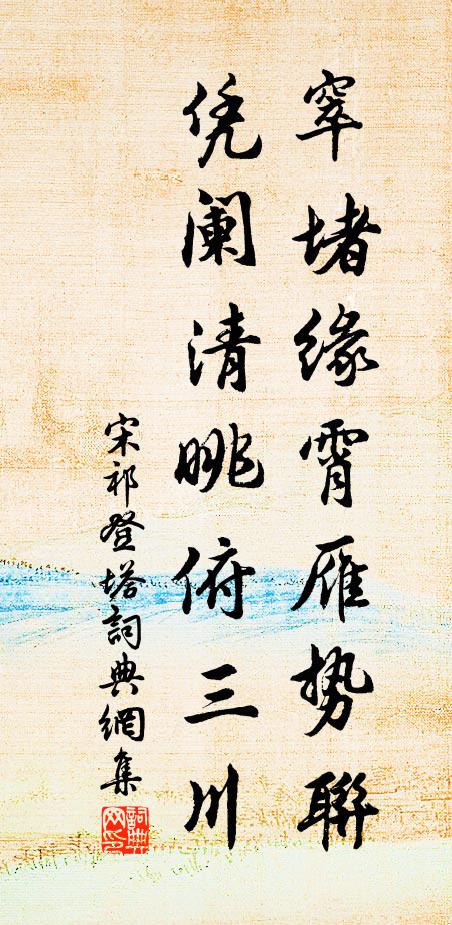 窣堵缘霄雁势联
凭阑清眺俯三川
宋祁登塔詞典網集
詞典网印